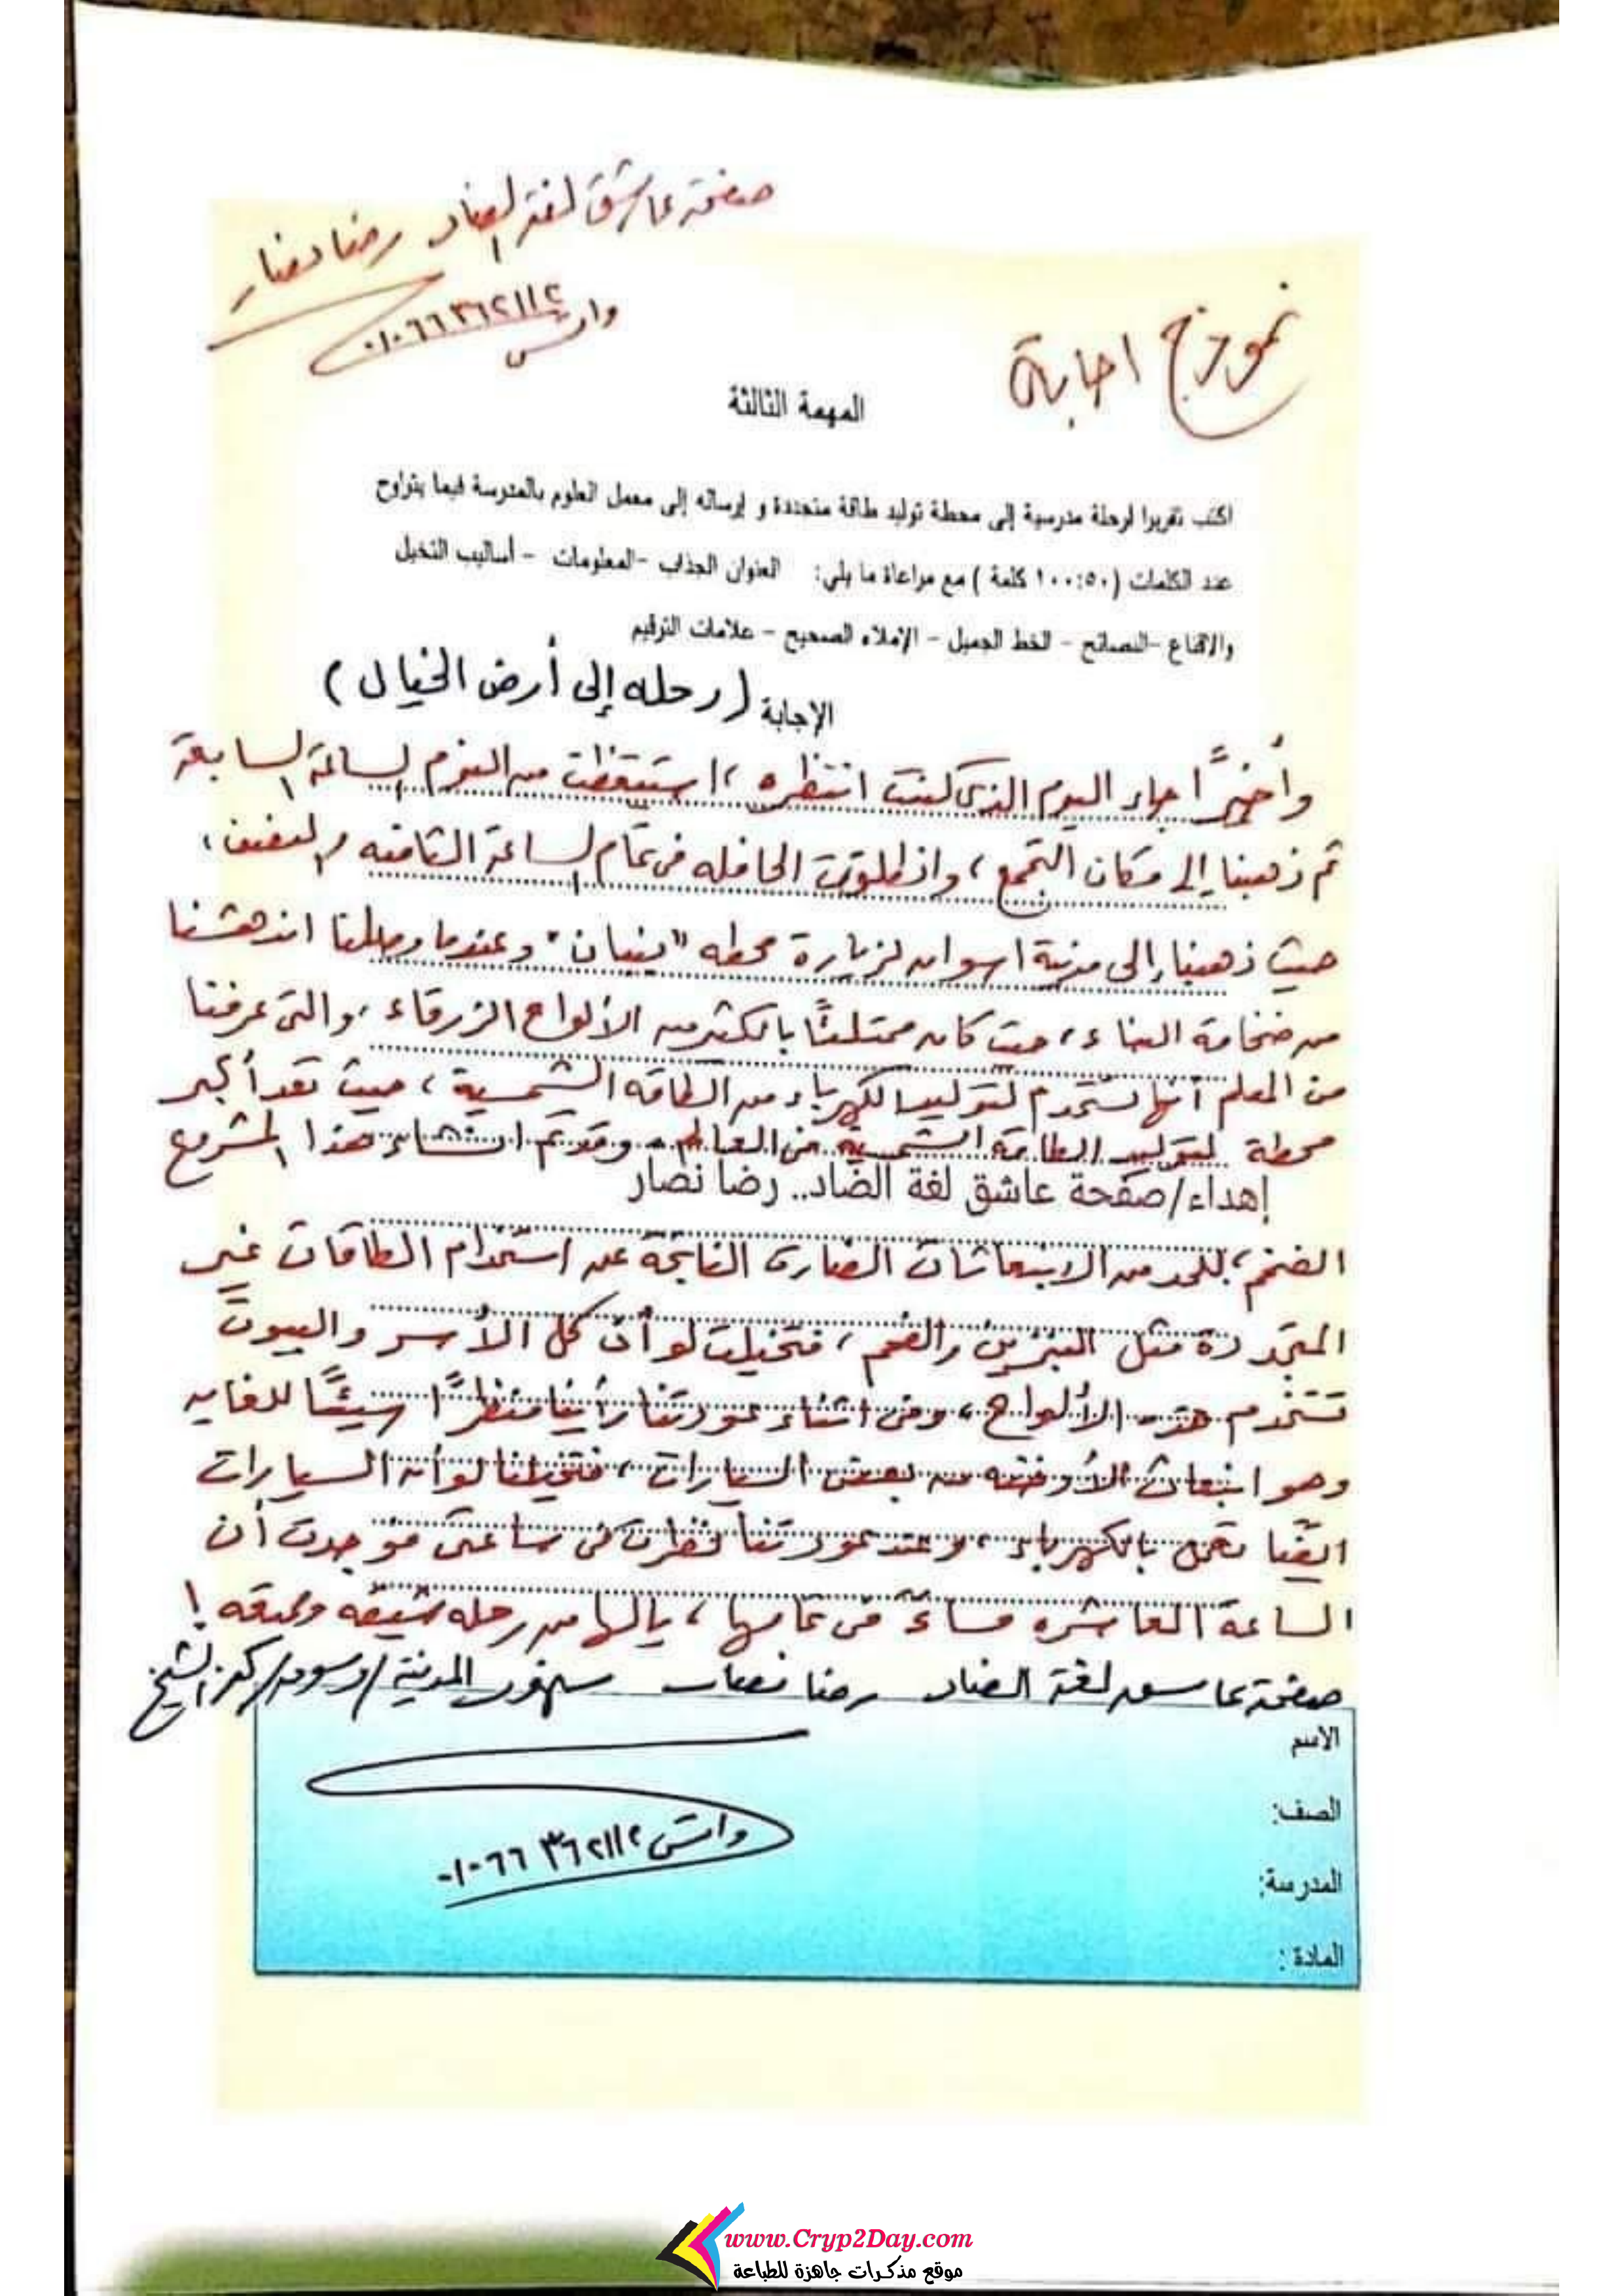 صفحة عاشق لغة الضاد رضا نصار
واتس ٠١٠٦٦٣٦٢١١٢
نموذج اجابة
المهمة الثالثة
اكتب تقريرا لرحلة مدرسية إلى محطة توليد طاقة متجددة و إرساله إلى معمل العلوم بالمدرسة فيما يتراوح
عدد الكلمات (١٠٠:٥٠ كلمة ) مع مراعاة ما يلي: العنوان الجذاب -المعلومات - أساليب التخيل
والاقناع -النصائح - الخط الجميل - الإملاء الصحيح - علامات الترقيم
الإجابة (رحله إلى أرض الخيال)
وأخيرًا جاء اليوم الذى كنت انتظره ، استيقظت من النوم الساعة السابعة
ثم ذهبنا إلى مكان التجمع ، وانطلقت الحافله فى تمام الساعة الثامنه والنصف ،
حيث ذهبنا إلى مدينة اسوان لزيارة محطه "بنبان" وعندما وصلنا اندهشنا
من ضخامة البناء ، حيث كان ممتلئًا بالكثير من الألواح الزرقاء ، والتى عرفنا
من المعلم أنها تستخدم لتوليد الكهرباء من الطاقه الشمسية ، حيث تعد أكبر
محطة لتوليد الطاقة الشمسية فى العالم . وقد تم انشاء هذا المشروع
إهداء/صفحة عاشق لغة الضاد.. رضا نصار
الضخم ، للحد من الانبعاثات الضارة الناتجة عن استخدام الطاقات غير
المتجددة مثل البنزين والفحم ، فتخيلت لو أن كل الأسر والبيوت
تستخدم هذه الألواح ، وفى اثناء عودتنا رأينا منظرًا سيئًا للغايه
وهو انبعاث الأدخنه من بعض السيارات ، فتخيلنا لو أن السيارات
ايضًا تعمل بالكهرباء ، وعند عودتنا نظرت فى ساعتى فوجدت أن
الساعة العاشره مساءً فى تمامها ، يالها من رحله شيقه وممتعه !
صفحة عاشق لغة الضاد رضا نصار سنهور المدينة/دسوق/كفر الشيخ
الاسم
الصف:
المدرسة:
المادة :
واتس ٠١٠٦٦٣٦٢١١٢
www.Cryp2Day.com
موقع مذكرات جاهزة للطباعة